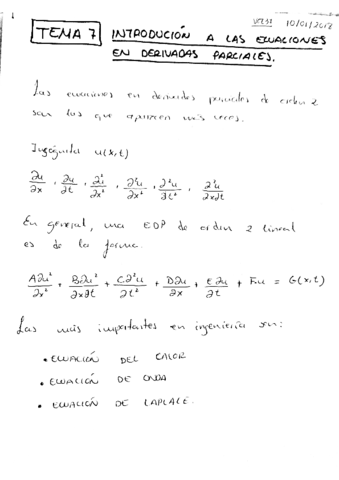 10/01/2018
TEMA 7 INTRODUCIÓN A LAS ECUACIONES
EN DERIVADAS PARCIALES.
Las ecuaciones en derivadas parciales de orden 2
son las que aparecen más veces.
Incógnita u(x,t)
∂u/∂x , ∂u/∂t , ∂²u/∂x² , ∂²u/∂x² , ∂²u/∂t² , ∂²u/∂x∂t
En general, una EDP de orden 2 lineal
es de la forma:
A∂u²/∂x² + B∂u²/∂x∂t + C∂²u/∂t² + D∂u/∂x + E∂u/∂t + Fu = G(x,t)
Las más importantes en ingeniería son:
• ECUACIÓN DEL CALOR
• ECUACIÓN DE ONDA
• ECUACIÓN DE LAPLACE.